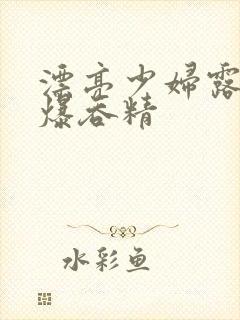 漂亮少婦露
爆吞精
水彩鱼